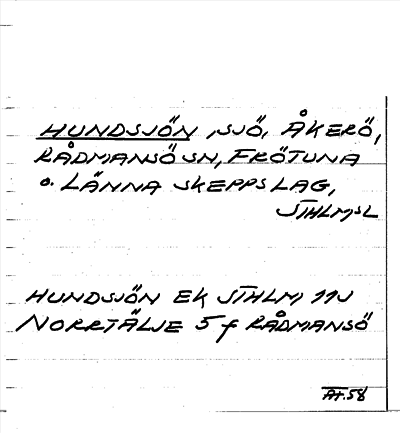 HUNDSJÖN, SJÖ, ÅKERÖ,
RÅDMANSÖ SN, FRÖTUNA
o. LÄNNA SKEPPSLAG,
STHLMSL
HUNDSJÖN EK STHLM 11J
NORRTÄLJE 5f RÅDMANSÖ
AH.58